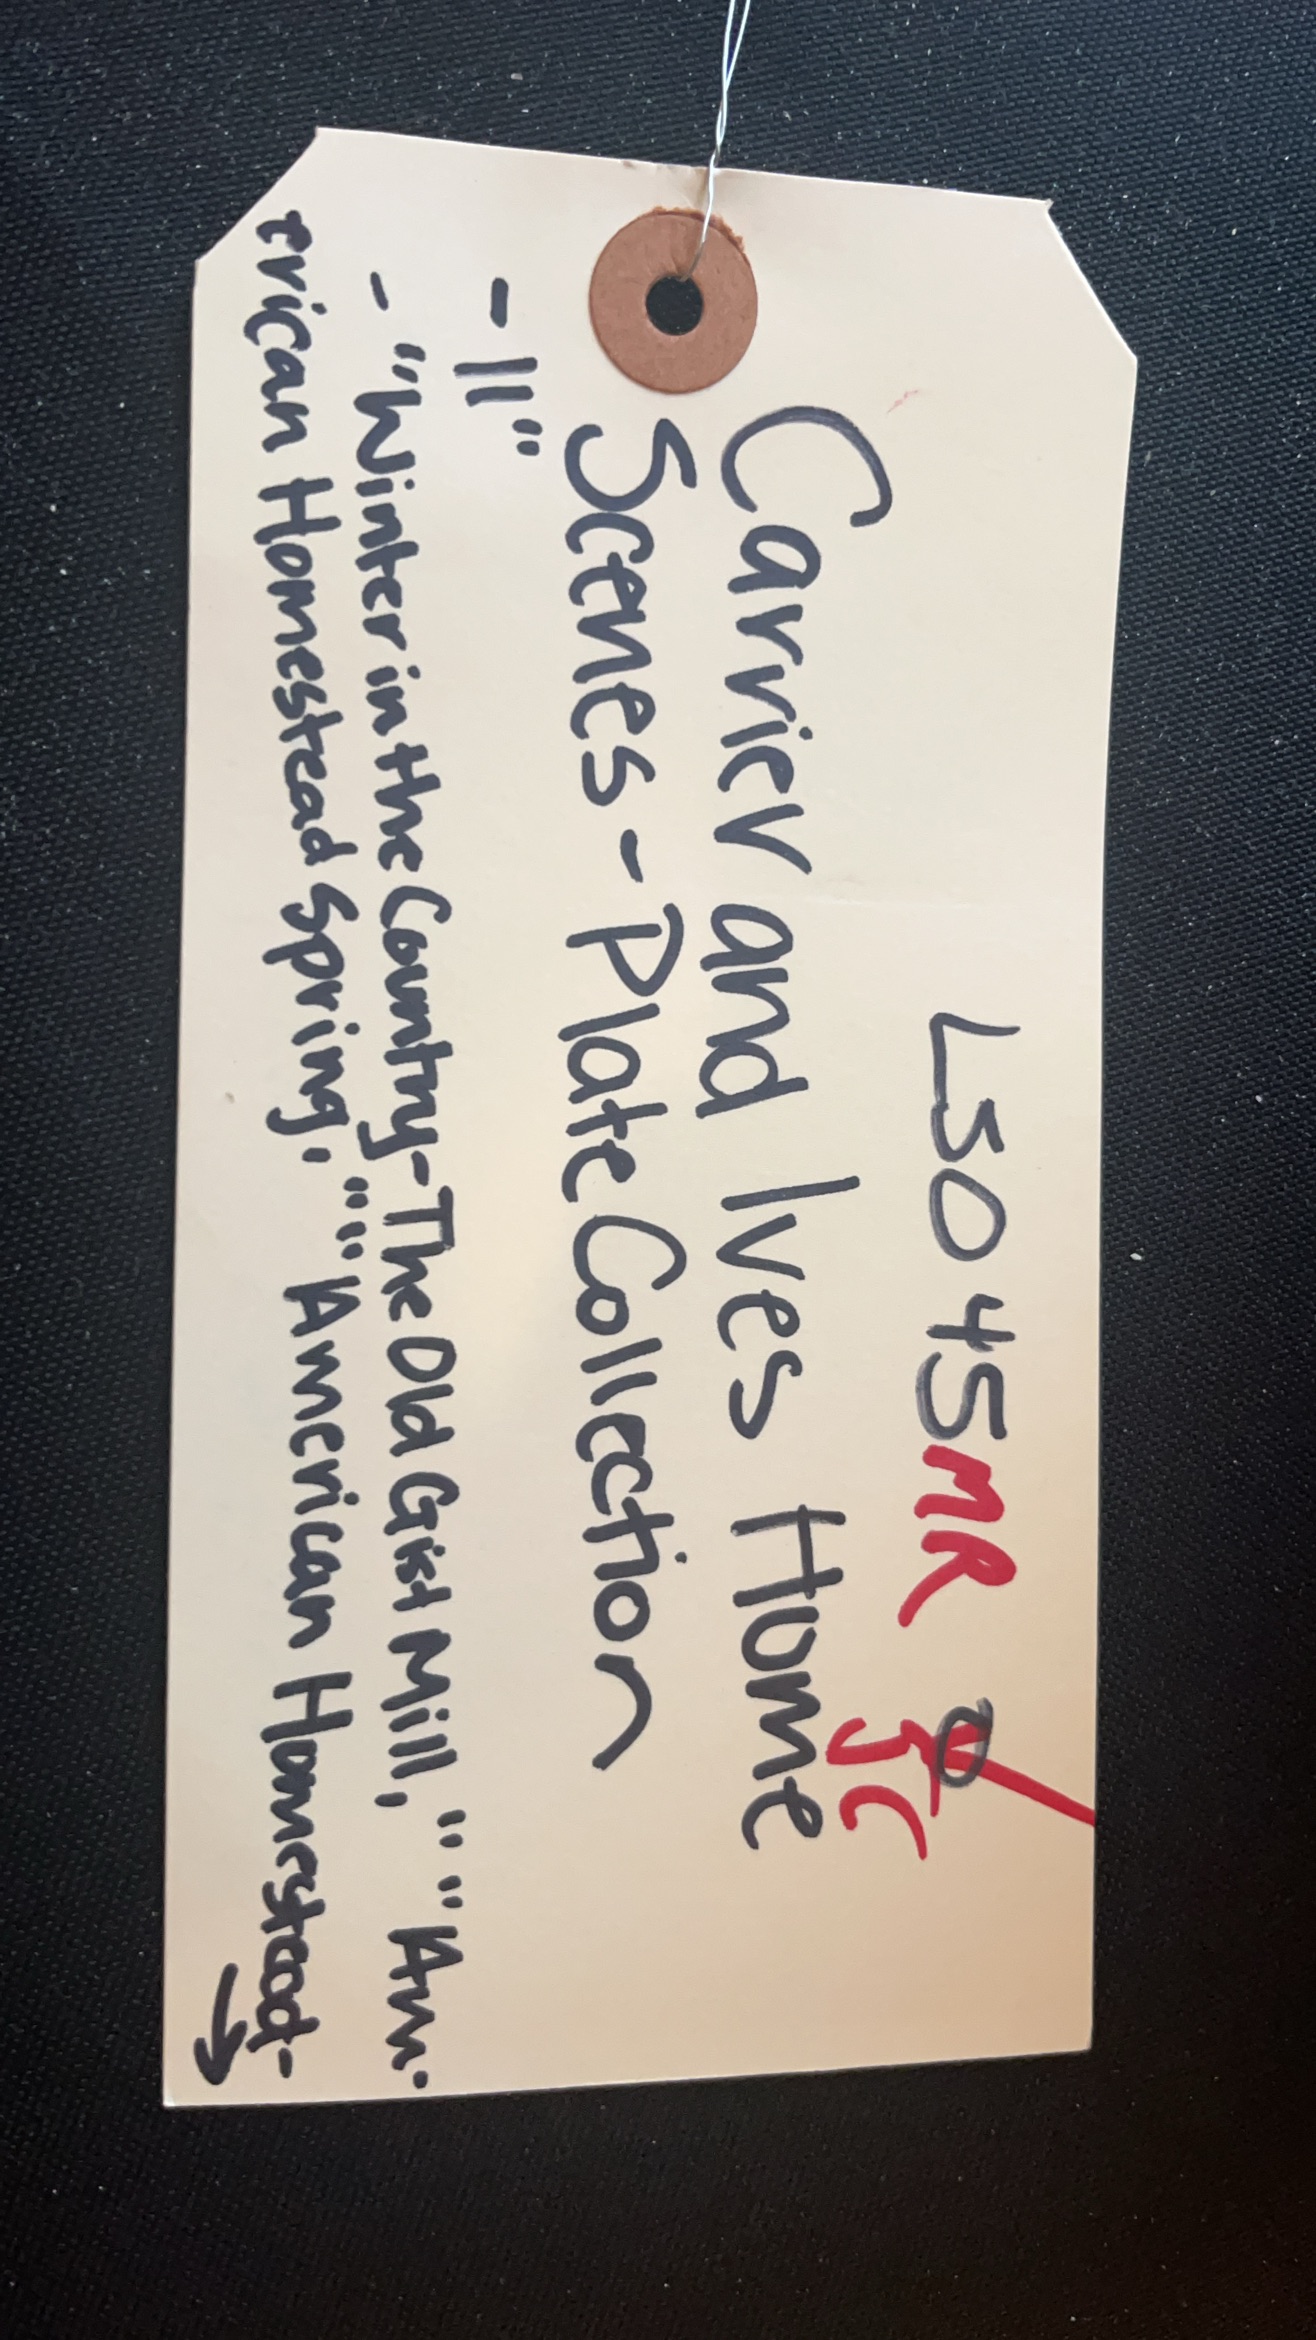 L5045MR
JC
Carrier and Ives Home
Scenes - Plate Collection
- 11"
- "Winter in the Country - The Old Grist Mill," "Am.
erican Homestead Spring," "American Homestead-